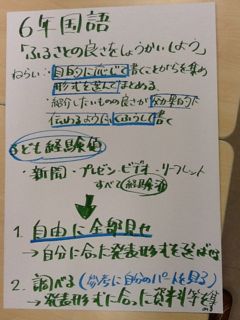 6年国語
「ふるさとの良さをしょうかいしよう」
ねらい:・目的に応じて書くことがらを集め
形式を選んでまとめる。
・紹介したいものの良さが効果的に
伝わるようにくふうして書く
子ども経験値
・新聞・プレゼン・ビデオ・リーフレット
すべて経験済
1. 自由に全部見せ
→自分に合った発表形式を選ばせ
2. 調べる(参考に自分のパートを見る)
→発表形式に合った資料等を